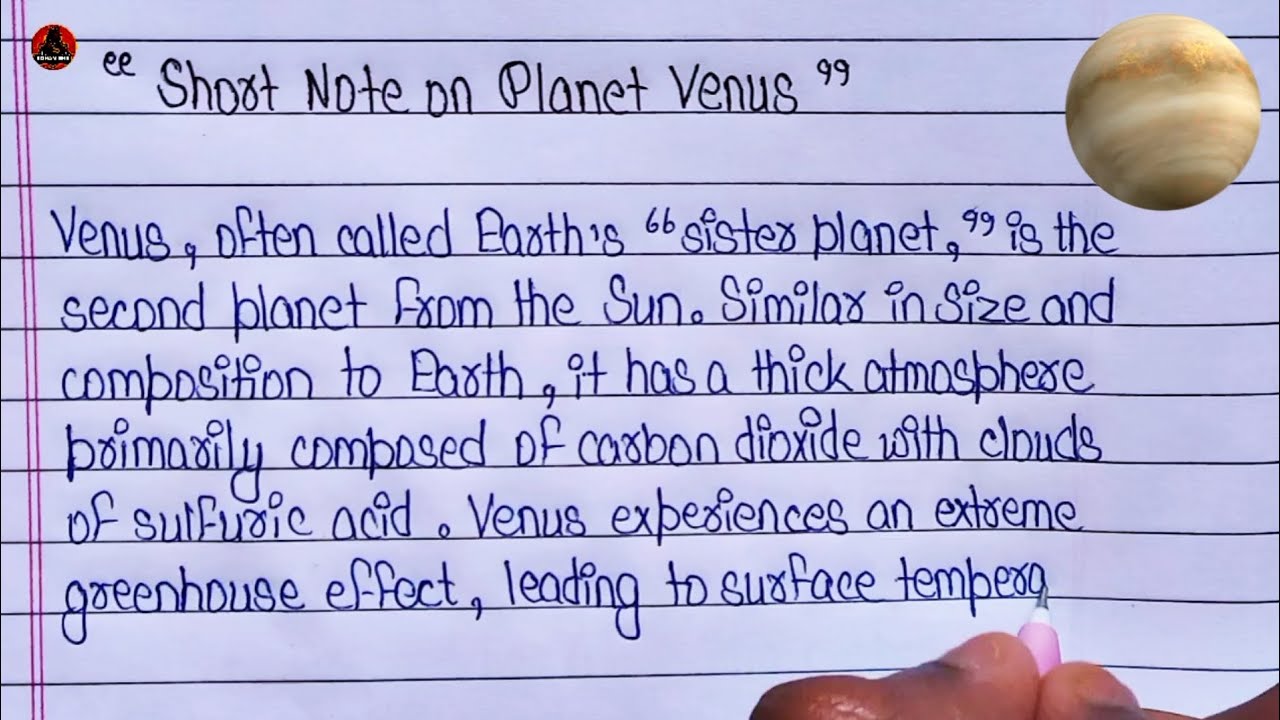 “ Short Note on Planet Venus ”
Venus, often called Earth's “sister planet,” is the
second planet from the Sun. Similar in size and
composition to Earth, it has a thick atmosphere
primarily composed of carbon dioxide with clouds
of sulfuric acid. Venus experiences an extreme
greenhouse effect, leading to surface tempera